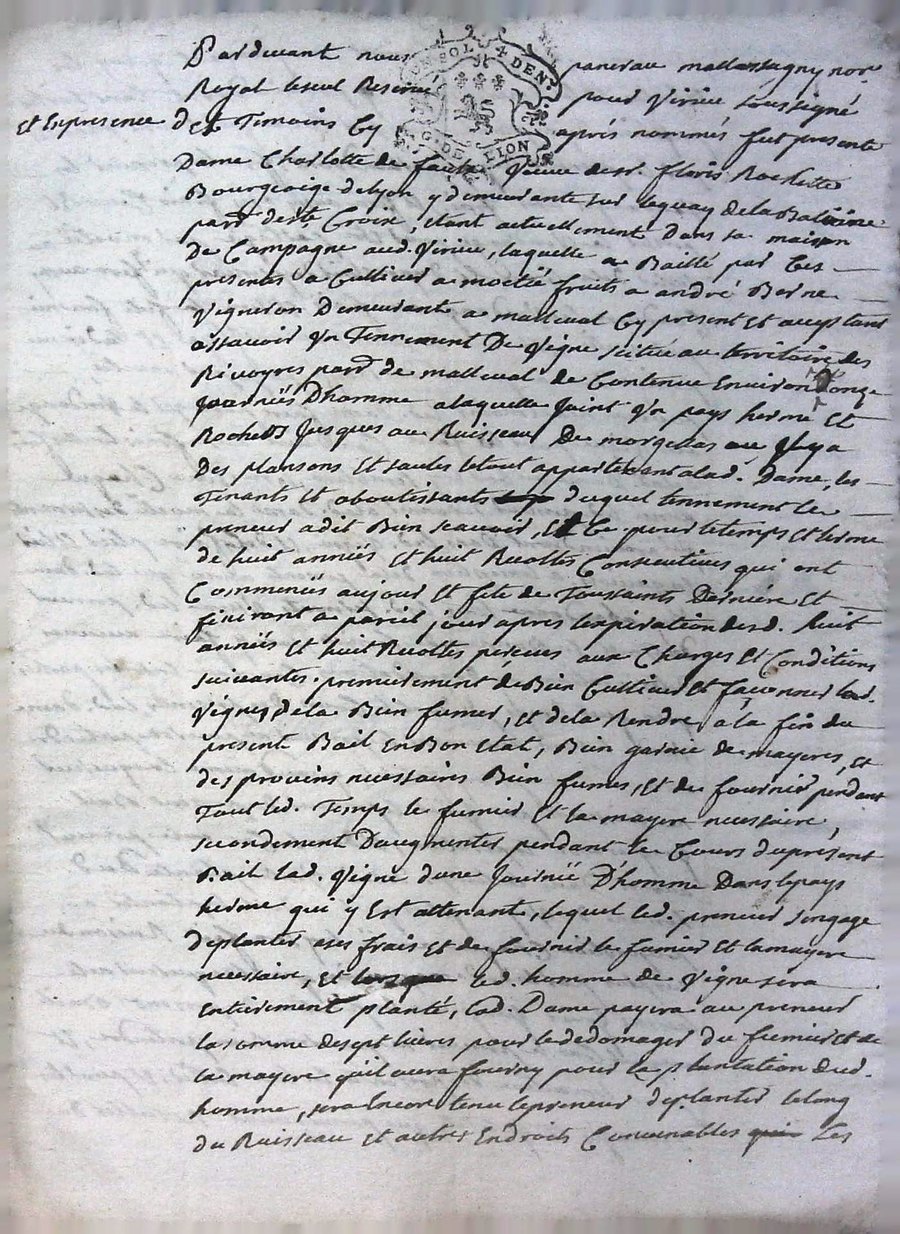 Pardevant nous pancrau mallassagny nore
UN SOL 4 DEN.
Royal Reservé pour virieu soussigné
G. DE LION
Et Enpresence des Temoins Cy après nommés fut presente
Dame Charlotte de veuve de sr. floris Rochette
Bourgeoise de lyon y demeurante sur le quay de la Baleine
paroisse de ste Croix, étant actuellement dans sa maison
De Campagne aud. Virieu, laquelle a Baillé par Ces
presentes a Cultiver a moitié fruits a andré Berne
vigneron Demeurant a malleval Cy present Et acceptant
assavoir Un Tennement De vigne scitué au territoire des
Rivoyres paroisse de malleval de Contenue Environ onze
Journées D'homme a laquelle Joint Un pays herme Et
Rochers Jusques au Ruisseau De morgettas ou il y a
Des plansons Et saules le tout appartenant a lad. Dame, les
Tenants Et aboutissants duquel tennement le
preneur a dit Bien scavoir, Et Ce pour le temps et terme
de huit années Et huit Recoltes Consecutives qui ont
Commencées au jour Et fete de Toussaints Derniere Et
finiront a pareil jour apres l'expiration desd. huit
années Et huit Recoltes perçues aux Charges Et Conditions
suivantes. premierement de Bien Cultiver Et façonner lad.
vigne, de la Bien fumer, Et de la Rendre à la fin du
present Bail En Bon Etat, Bien garnie de mayeres, et
des provins necessaires Bien fumés, Et de fournir pendant
Tout led. Temps le fumier Et la mayere necessaire,
secondement D'augmenter pendant le Cours du present
Bail lad. vigne d'une Journée D'homme Dans le pays
herme qui y Est attenant, lequel led. preneur s'engage
de planter a ses frais Et de fournir le fumier Et la mayere
necessaire, Et lorsque led. homme de vigne sera
Entierement planté, Lad. Dame payera au preneur
la somme de sept livres pour le dedomager du fumier Et de
la mayere qu'il aura fourny pour la plantation dud.
homme, sera Encore tenu le preneur de planter le long
du Ruisseau Et autres Endroits Convenables qui Les